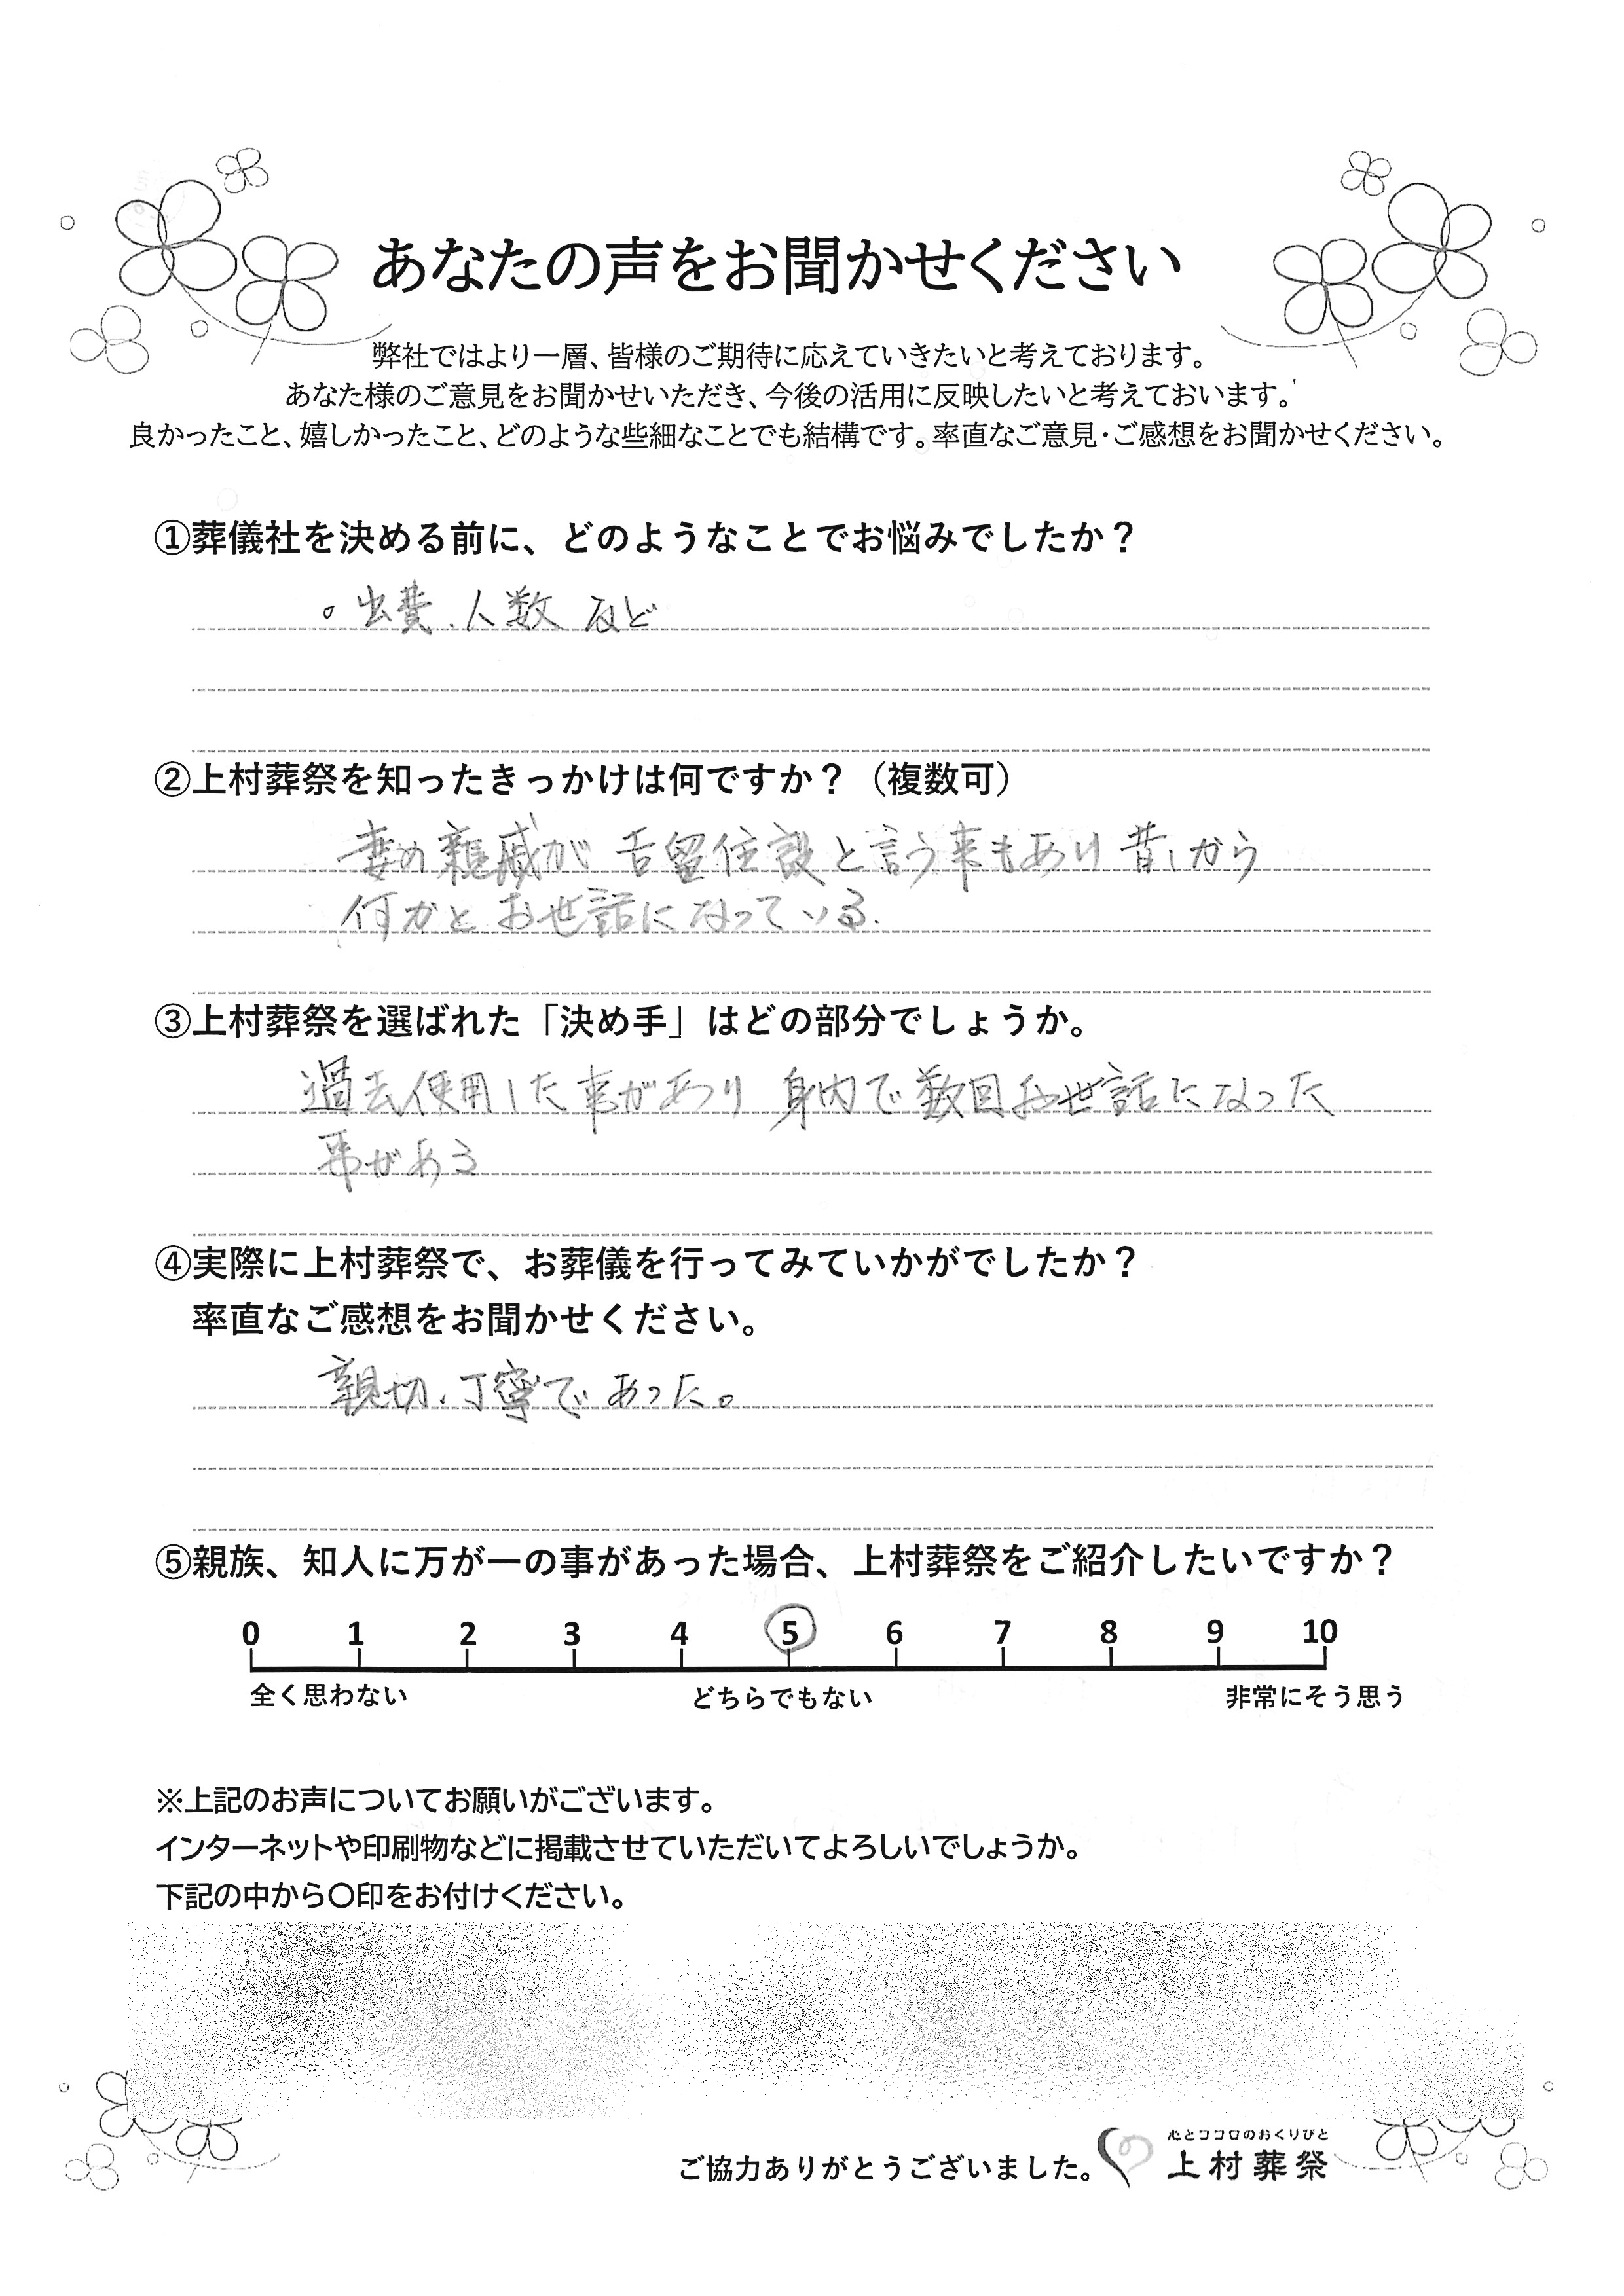 あなたの声をお聞かせください
弊社ではより一層、皆様のご期待に応えていきたいと考えております。
あなた様のご意見をお聞かせいただき、今後の活用に反映したいと考えておいます。
良かったこと、嬉しかったこと、どのような些細なことでも結構です。率直なご意見・ご感想をお聞かせください。
①葬儀社を決める前に、どのようなことでお悩みでしたか？
。出費、人数 など
②上村葬祭を知ったきっかけは何ですか？（複数可）
妻の親戚が 留住設と言う事もあり 昔しから
何かと お世話に なっている.
③上村葬祭を選ばれた「決め手」はどの部分でしょうか。
過去使用した事があり 身内で数回お世話になった
事がある
④実際に上村葬祭で、お葬儀を行ってみていかがでしたか？
率直なご感想をお聞かせください。
親切、丁寧で あった。
⑤親族、知人に万が一の事があった場合、上村葬祭をご紹介したいですか？
0 1 2 3 4 5 6 7 8 9 10
全く思わない どちらでもない 非常にそう思う
※上記のお声についてお願いがございます。
インターネットや印刷物などに掲載させていただいてよろしいでしょうか。
下記の中から〇印をお付けください。
心とココロのおくりびと
ご協力ありがとうございました。 上村葬祭